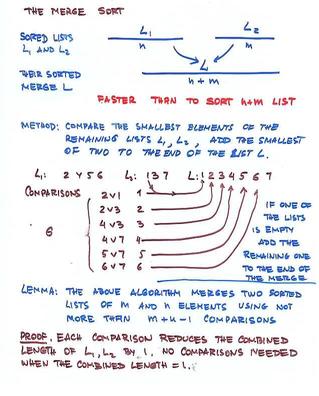 THE MERGE SORT
SORED LISTS L₁ L₂
L₁ AND L₂ n m
THEIR SORTED L
MERGE L n+m
FASTER THAN TO SORT n+m LIST
METHOD: COMPARE THE SMALLEST ELEMENTS OF THE
REMAINING LISTS L₁, L₂, ADD THE SMALLEST
OF TWO TO THE END OF THE LIST L.
L₁: 2 4 5 6 L₂: 1 3 7 L: 1 2 3 4 5 6 7
COMPARISONS
2 v 1 1
2 v 3 2
4 v 3 3
6 4 v 7 4
5 v 7 5
6 v 7 6
IF ONE OF
THE LISTS
IS EMPTY
ADD THE
REMAINING ONE
TO THE END OF
THE MERGE
LEMMA: THE ABOVE ALGORITHM MERGES TWO SORTED
LISTS OF m AND n ELEMENTS USING NOT
MORE THAN m+n-1 COMPARISONS
PROOF. EACH COMPARISON REDUCES THE COMBINED
LENGTH OF L₁, L₂ BY 1. NO COMPARISONS NEEDED
WHEN THE COMBINED LENGTH = 1.